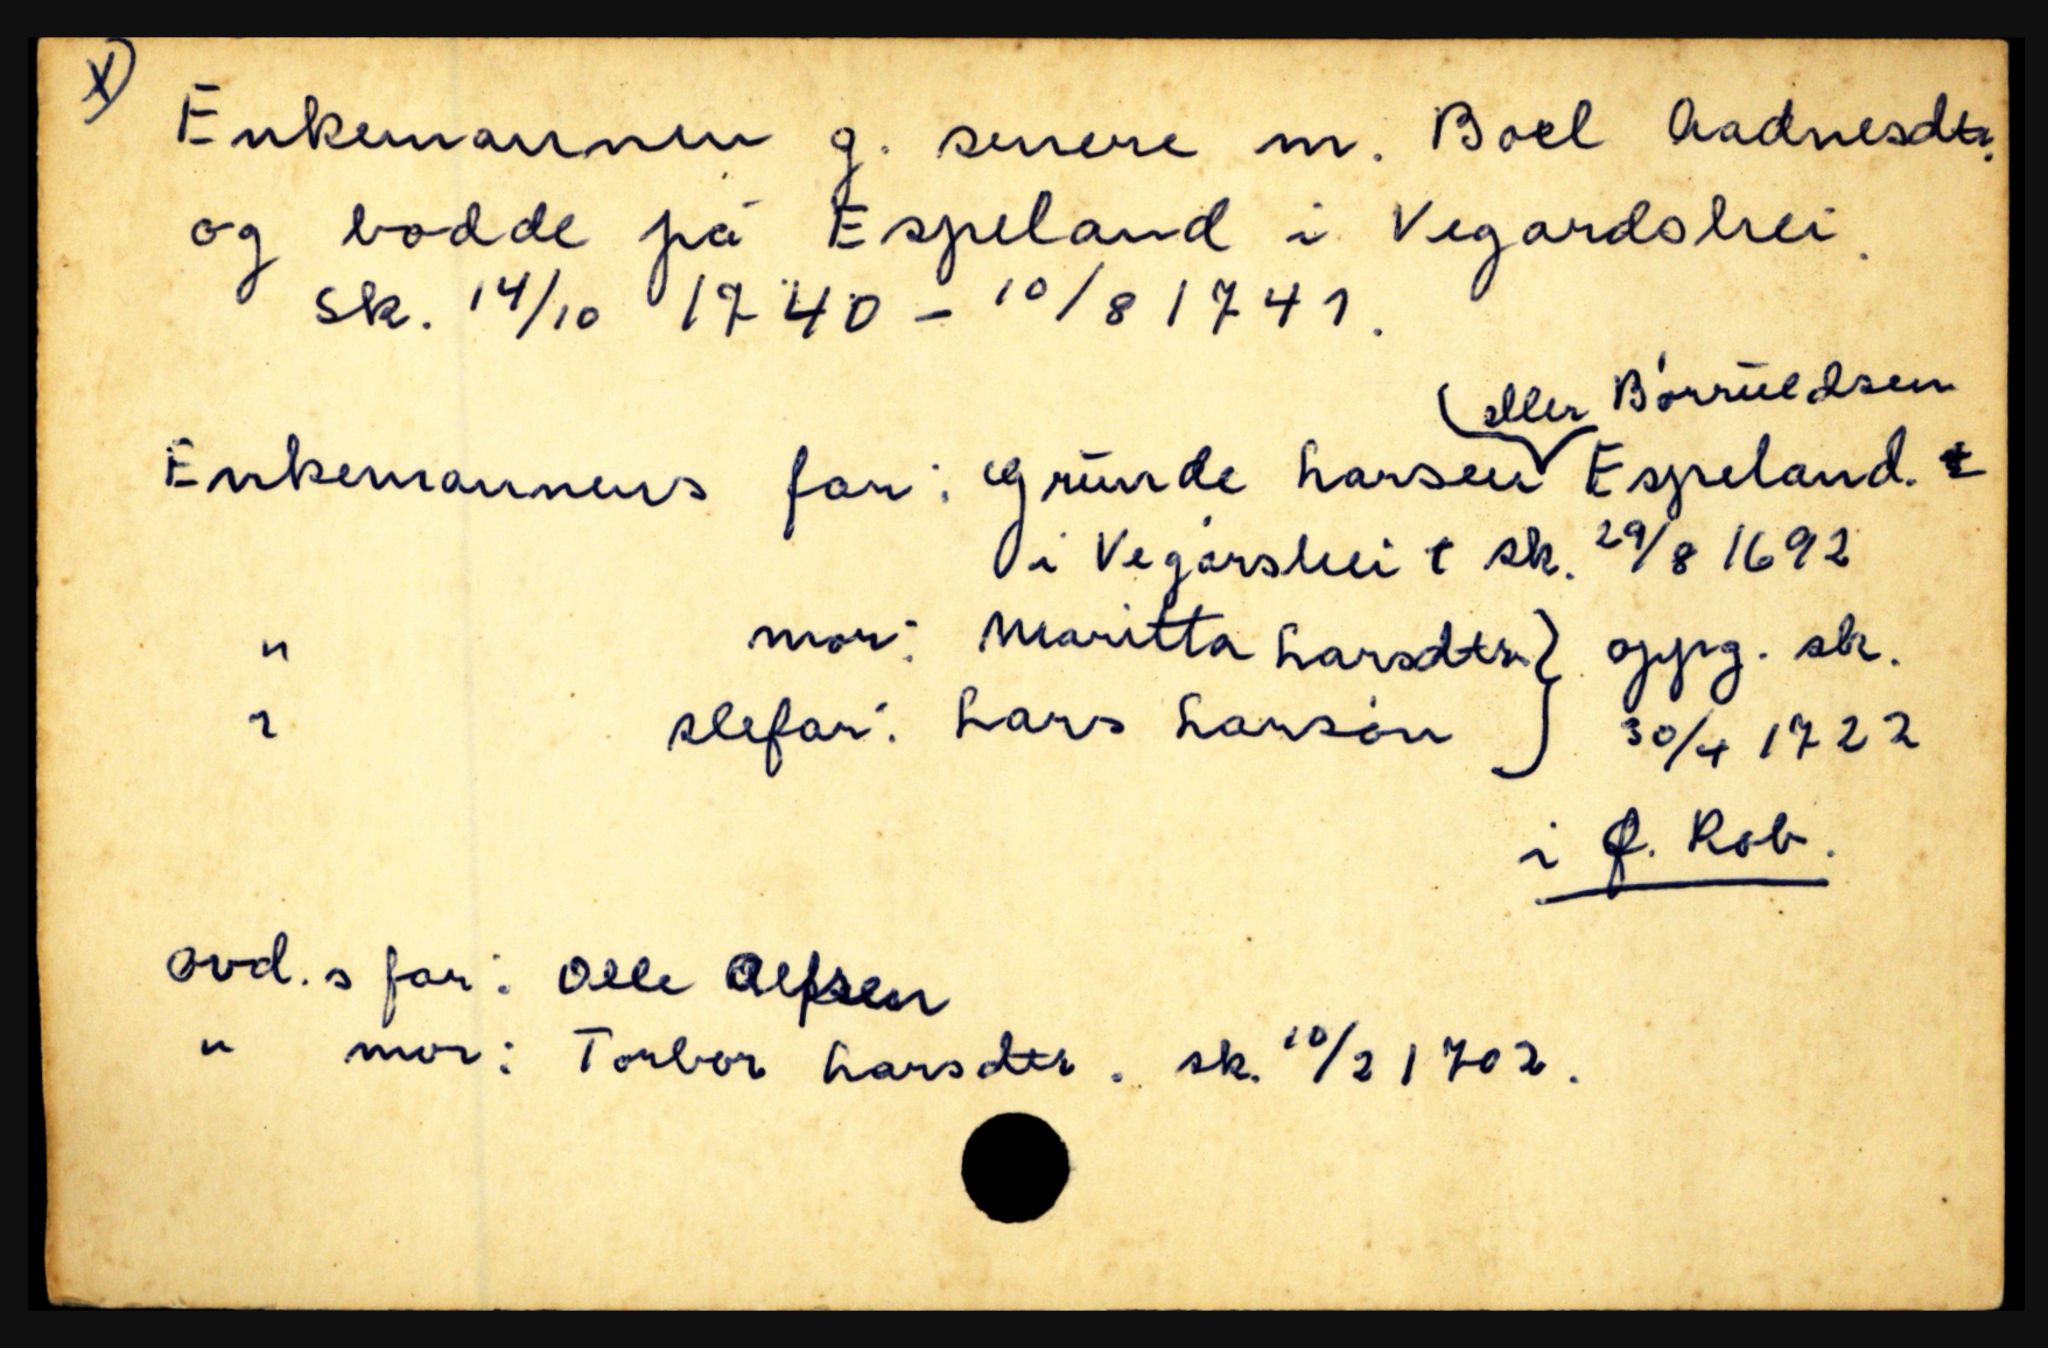 x)
Enkemannen g. senere m. Boel Aadnesdtr.
og bodde på Espeland i Vegardshei.
Sk. 14/10 1740 - 10/8 1741.
(eller Börrüldsen
Enkemannens far: Gründe Larsen Espeland. t
i Vegårshei t sk. 29/8 1692
" mor: Maritta Larsdtr. } oppg. sk.
" stefar: Lars Larson } 30/4 1722
i Ø. Rob.
Avd.s far: Olle Alfsen
" mor: Torbor Larsdtr. sk. 10/2 1702.